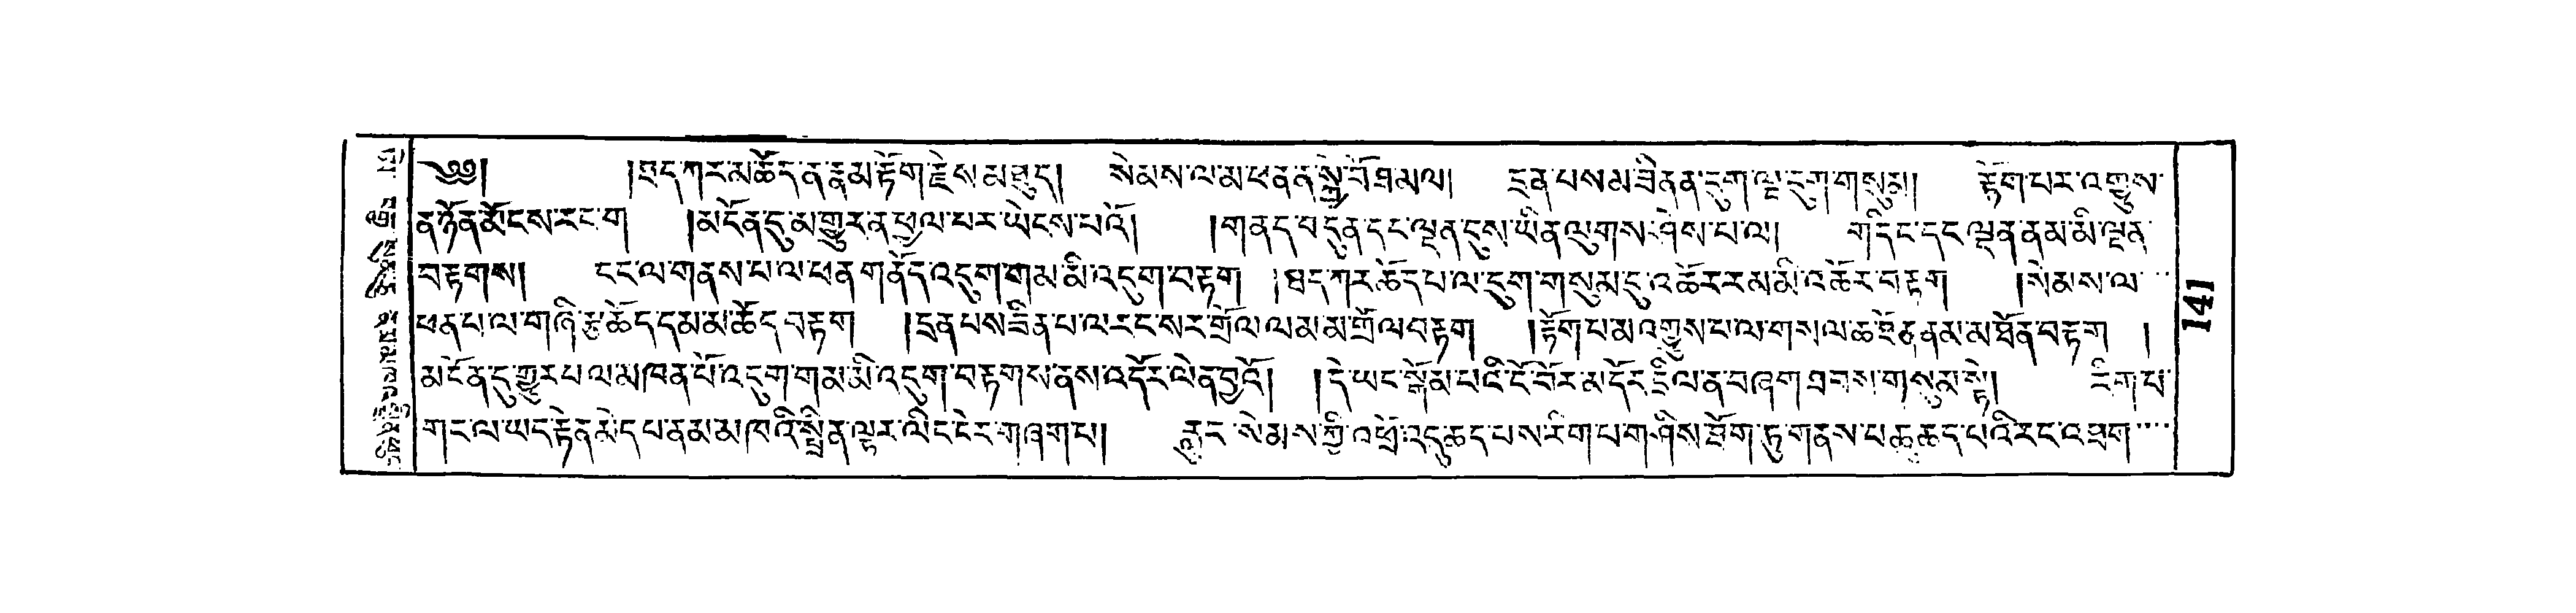 ༄༅། །ཁྲད་ཀར་མ་ཆོད་ན་རྣམ་རྟོག་རྗེས་མཐུད། སེམས་ལ་མ་ཕན་ན་སྐྱེ་བོ་ཐམལ། དྲན་པས་མ་ཟིནན་དུག་ལྔ་དུག་གསུམ། རྟོག་པར་འགྱུས་
ན་ཉོན་མོངས་རང་ག །མངོན་དུ་མ་གྱུར་ན་ཕྱལ་བར་ཡེངས་པའོ། །གནད་བདུན་དང་ལྡན་དུས་ཡིན་ལུགས་ཤེས་པ་ལ། གདིང་དང་ལྡན་ནམ་མི་ལྡན་
བརྟགས། ངང་ལ་གནས་པ་ལ་ཕན་གནོད་འདུག་གམ་མི་འདུག་བརྟག །ཐད་ཀར་ཆོད་པ་ལ་དུག་གསུམ་དུ་འཆོརརམ་མི་འཆོར་བརྟག །སེམས་ལ་
ཕན་པ་ལ་གཞི་རྩ་ཆོད་དམ་མ་ཆོད་བརྟག །དྲན་པས་ཟིན་པ་ལ་རང་སར་གྲོལ་ལམ་མ་གྲོལ་བརྟག །རྟོག་པ་མ་འགྱུས་པ་ལ་གསལ་ཆ་ཐོནནམ་མ་ཐོན་བརྟག །
མངོན་དུ་གྱུར་པ་ལ་མཁན་པོ་འདུག་གམ་མི་འདུག་བརྟགས་ནས་འདོར་ལེན་བྱའོ། །དེ་ཡང་སྒོམ་པའི་ངོ་བོར་མ་དོར་དྲིལ་ན་བཞག་ཐབས་གསུམ་སྟེ། རིག་པ་
གང་ལ་ཡང་རྟེན་མེད་པ་ནམ་མཁའི་སྤྲིན་ལྟར་ལིང་ངེར་གཞག་པ། རླུང་སེམས་ཀྱི་འཕྲོ་འདུ་ཆད་པས་རིག་པ་གཤིས་ཐོག་ཏུ་གནས་པ་ཆུ་ཆད་པའི་རང་འཐག
141